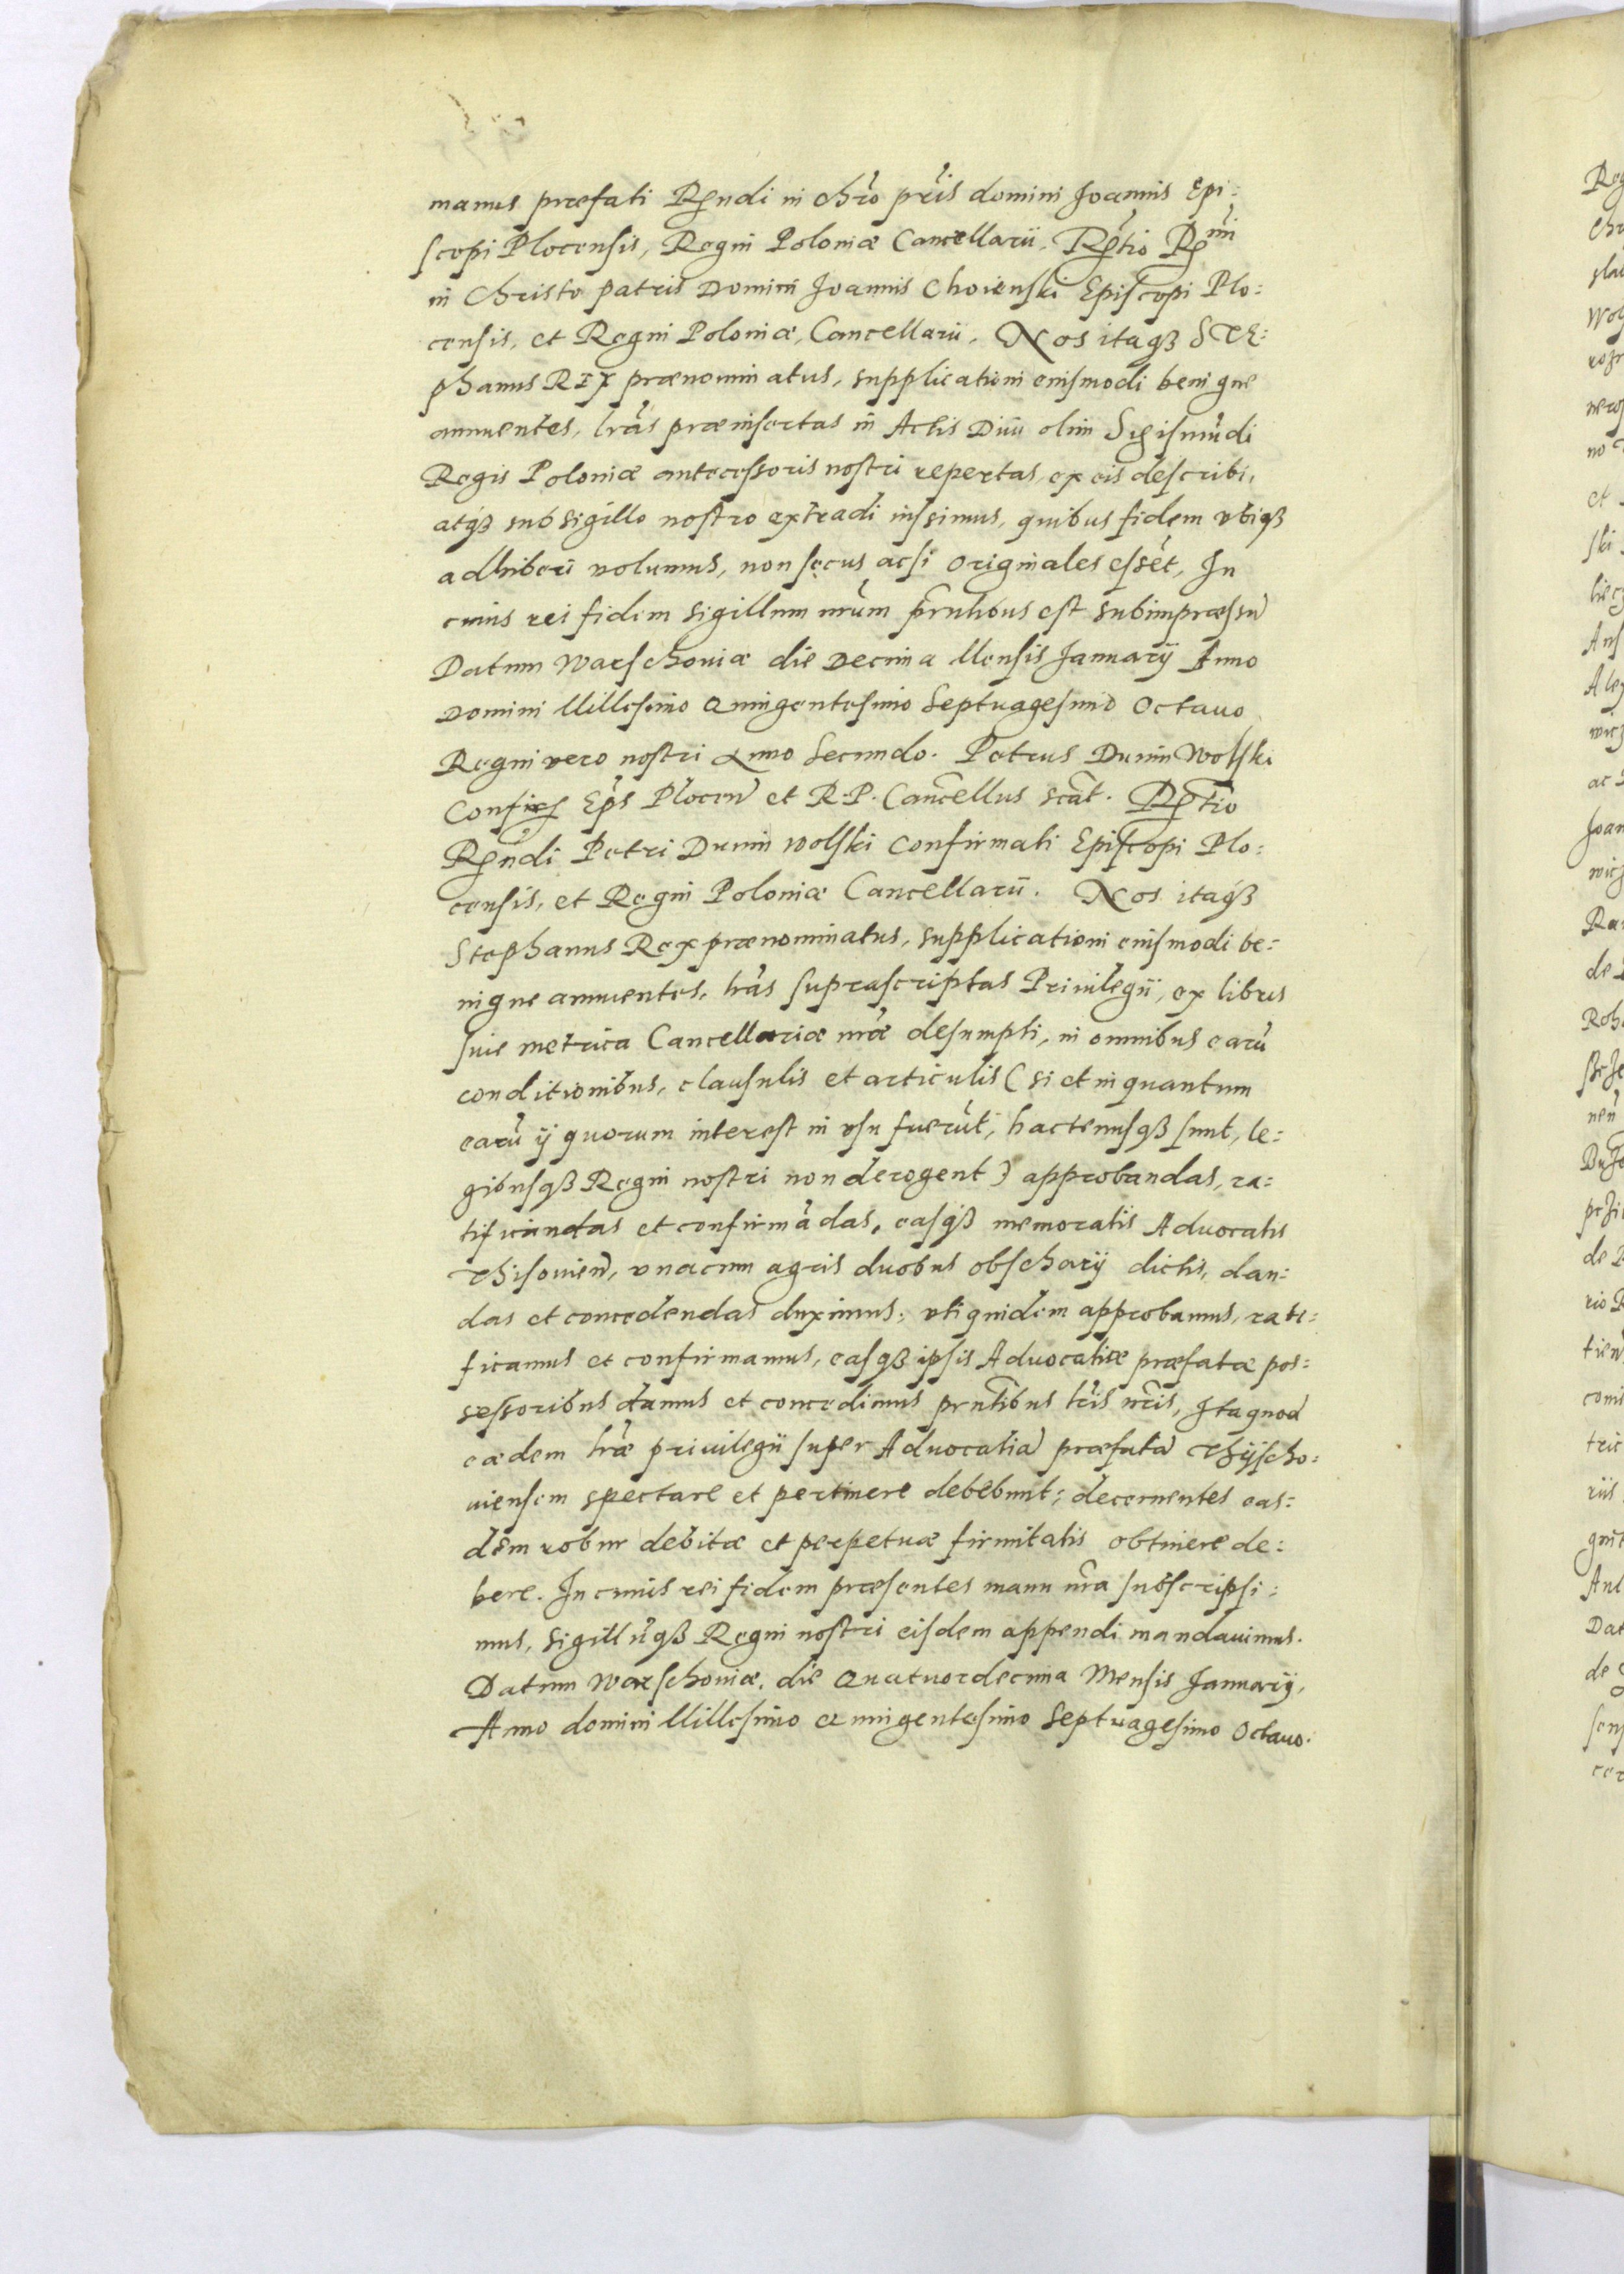 manus præfati Rndi in chro pris domini Joannis Epi:
scopi Plocensis, Regni Poloniæ Cancellarii. Rtio Rmi
in Christo patris Domini Joannis Choienski Episcopi Plo:
censis, et Regni Poloniæ, Cancellarii. Nos itaqß STE:
phanus REX prænominatus, supplicationi eiusmodi benigne
annuentes, lras præinsertas in Actis Diui olim Sigismũdi
Regis Poloniæ antecessoris nostri repertas, ex eis describi,
atqß sub sigillo nostro extradi iussimus, quibus fidem vbiqß
adhiberi volumus, non secus acsi originales essẽt, In
cuius rei fidem sigillum nrum prntibus est subimpræssũ
Datum Warschoviæ die Decima Mensis Januarij Anno
Domini Millesimo Quingentesimo Septuagesimo Octauo
Regni vero nostri Anno Secundo. Petrus Dunin Wolski
Epũs Plocen̄ et R. P. Cancellus scãt. Rtio
Rndi Petri Dunin Wolski Confirmati Episcopi Plo:
censis, et Regni Poloniæ Cancellarii. Nos itaqß
Stephanus Rex prænominatus, supplicationi eiusmodi be:
nigne annuentes, lras suprascriptas Priuilegii, ex libris
siue metrica Cancellariæ nræ desumpti, in omnibus earũ
conditionibus, clausulis et articulis (si et in quantum
earũ ij quorum interest in vsu fuerũt, hactenusqß sunt, le:
gibusqß Regni nostri non derogent) approbandas, ra:
tificandas et confirmãdas, easqß memoratis Aduocatis
Thisouien̄, vnacum agris duobus obscharij dictis, dan:
das et concedendas duximus; vti quidem approbamus, rati:
ficamus et confirmamus, easqß ipsis Aduocatiæ præfatæ pos:
sessoribus damus et concedimus prntibus lris nris, Ita quod
eædem lræ priuilegii super Aduocatiã præfatã Thijscho:
uiensem spectare et pertinere debebunt; decernentes eas:
dem robur debitæ et perpetuæ firmitatis obtinere de:
bere. In cuius rei fidem præsentes manu nra subscripsi:
mus, sigillũqß Regni nostri eisdem appendi mandauimus.
Datum Warschouiæ, die Quatuordecima Mensis Januarij,
Anno domini Millesimo Quingentesimo Septuagesimo Octauo.